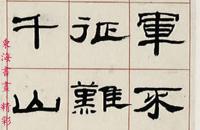 軍不
征難
千山
東海書畫精彩